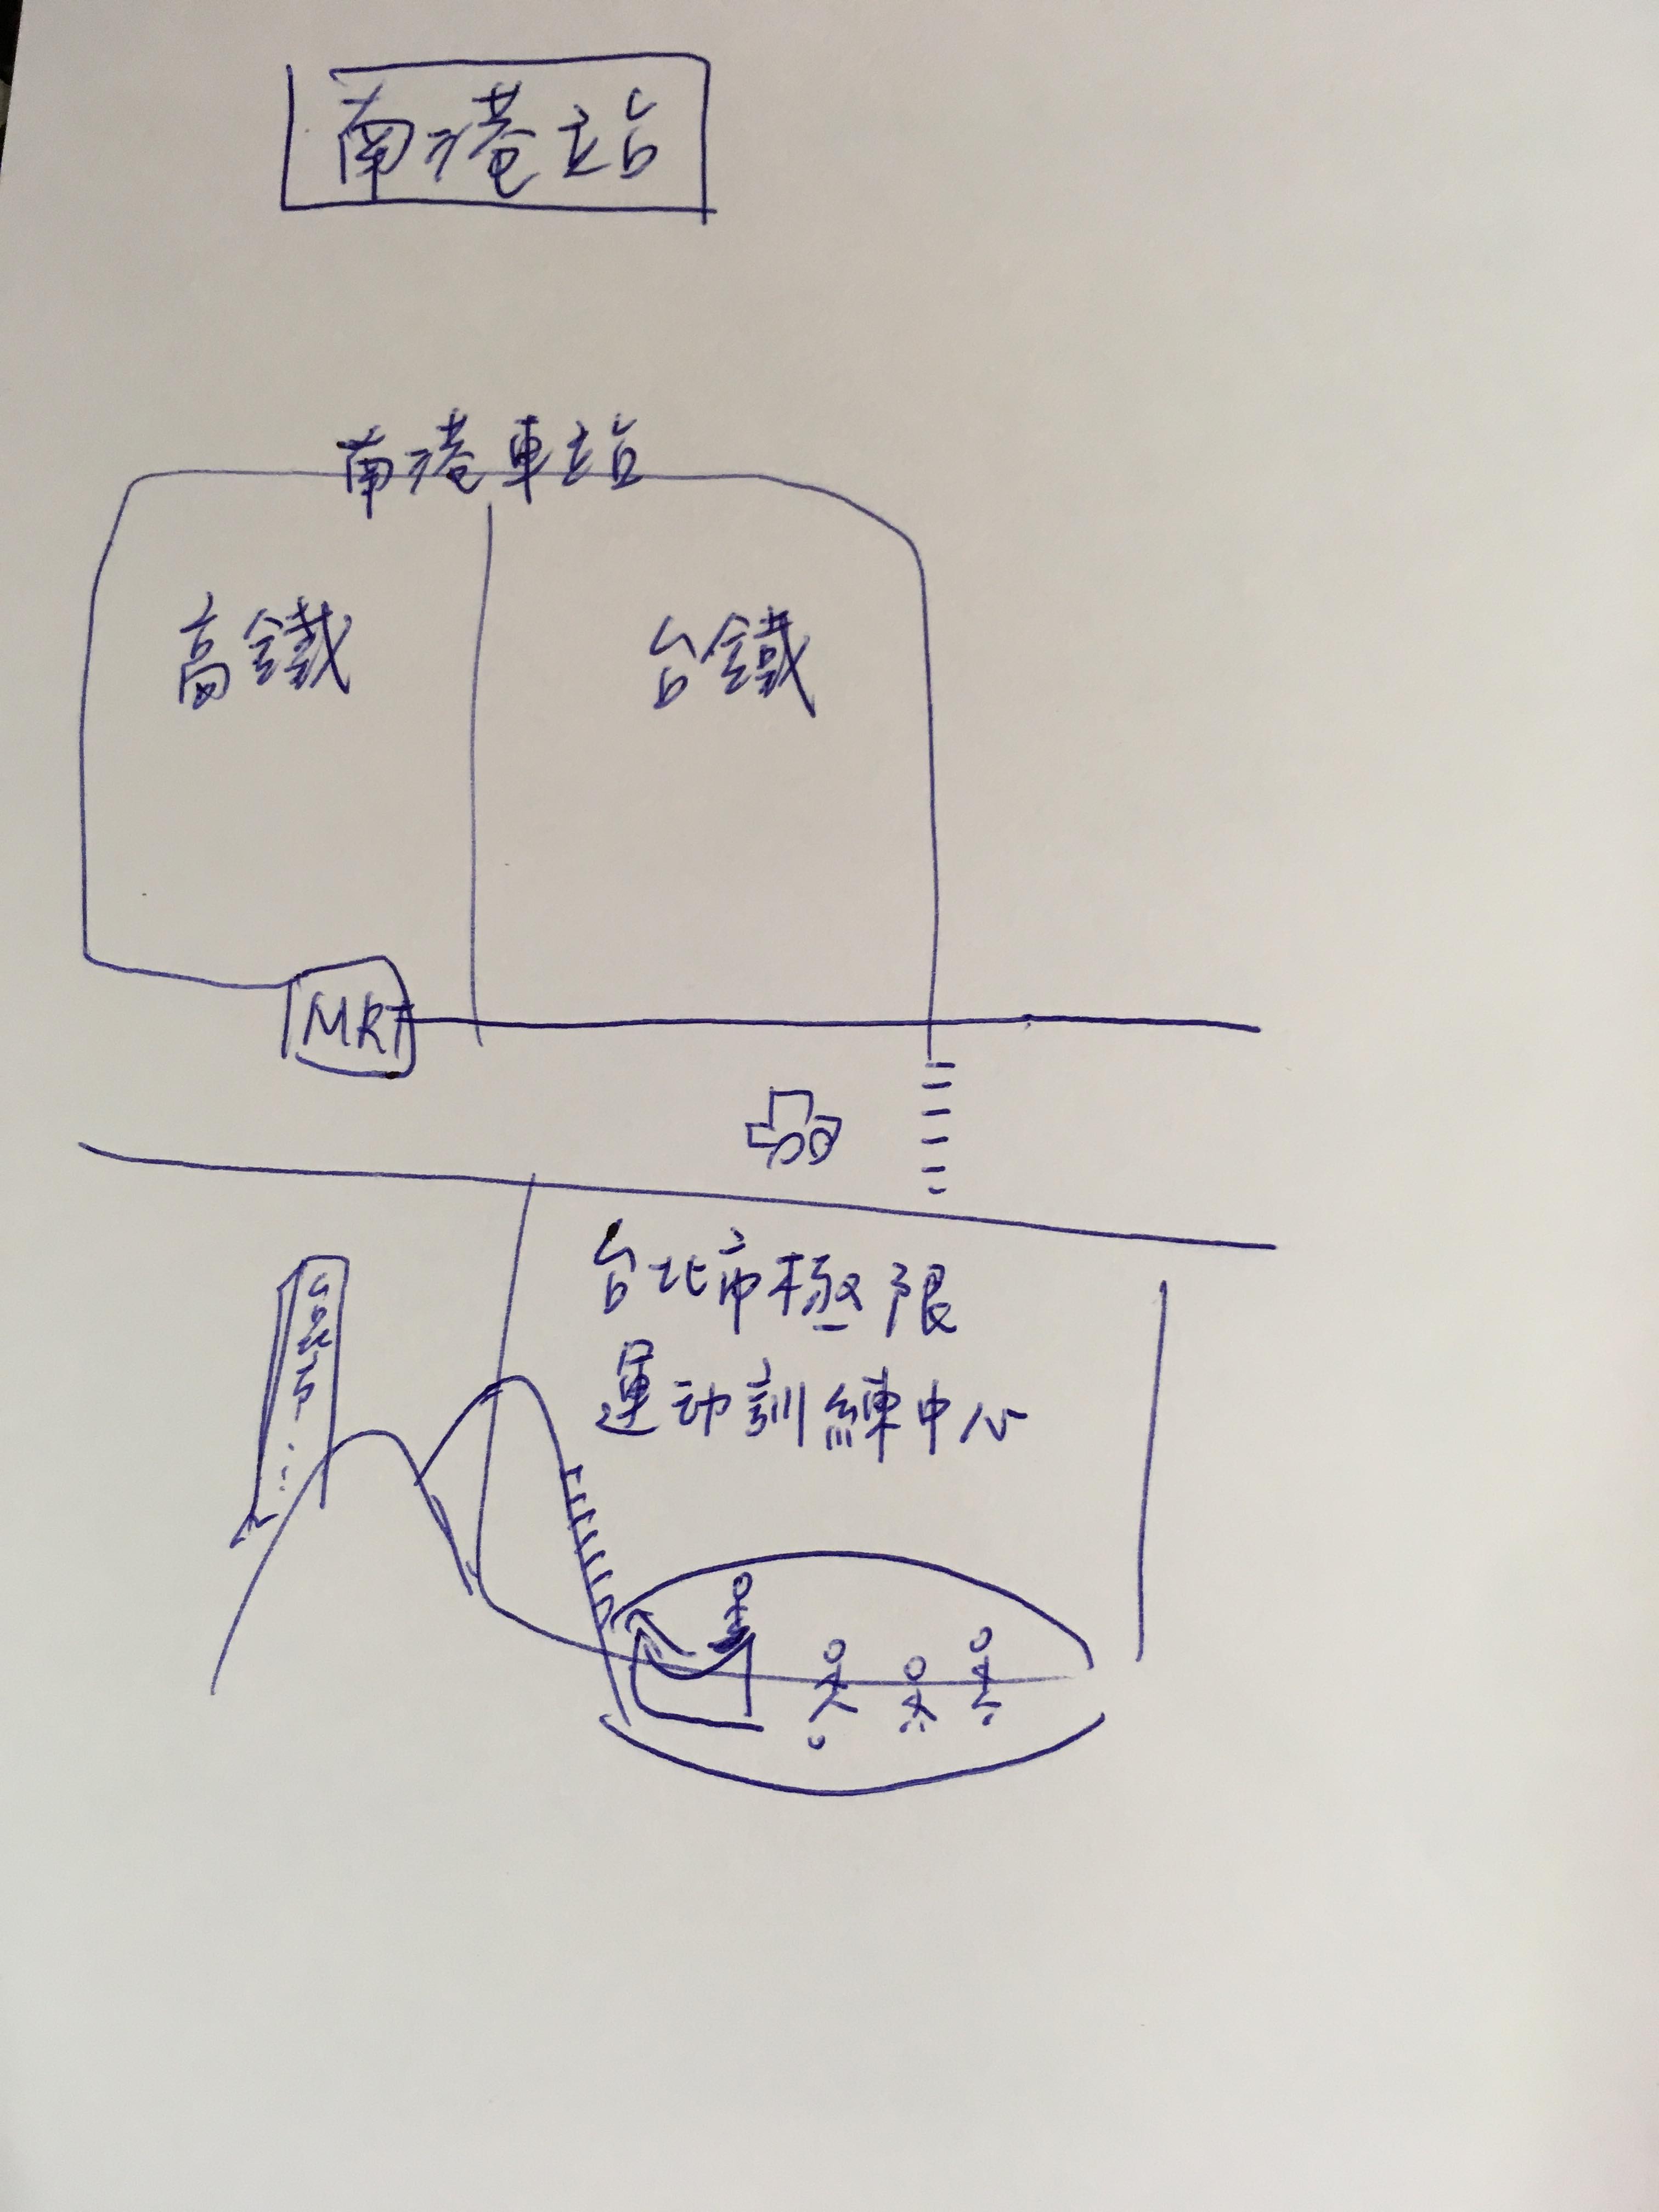 南港站
南港車站
高鐵
台鐵
MRT
台北市極限
運动訓練中心
台北市...